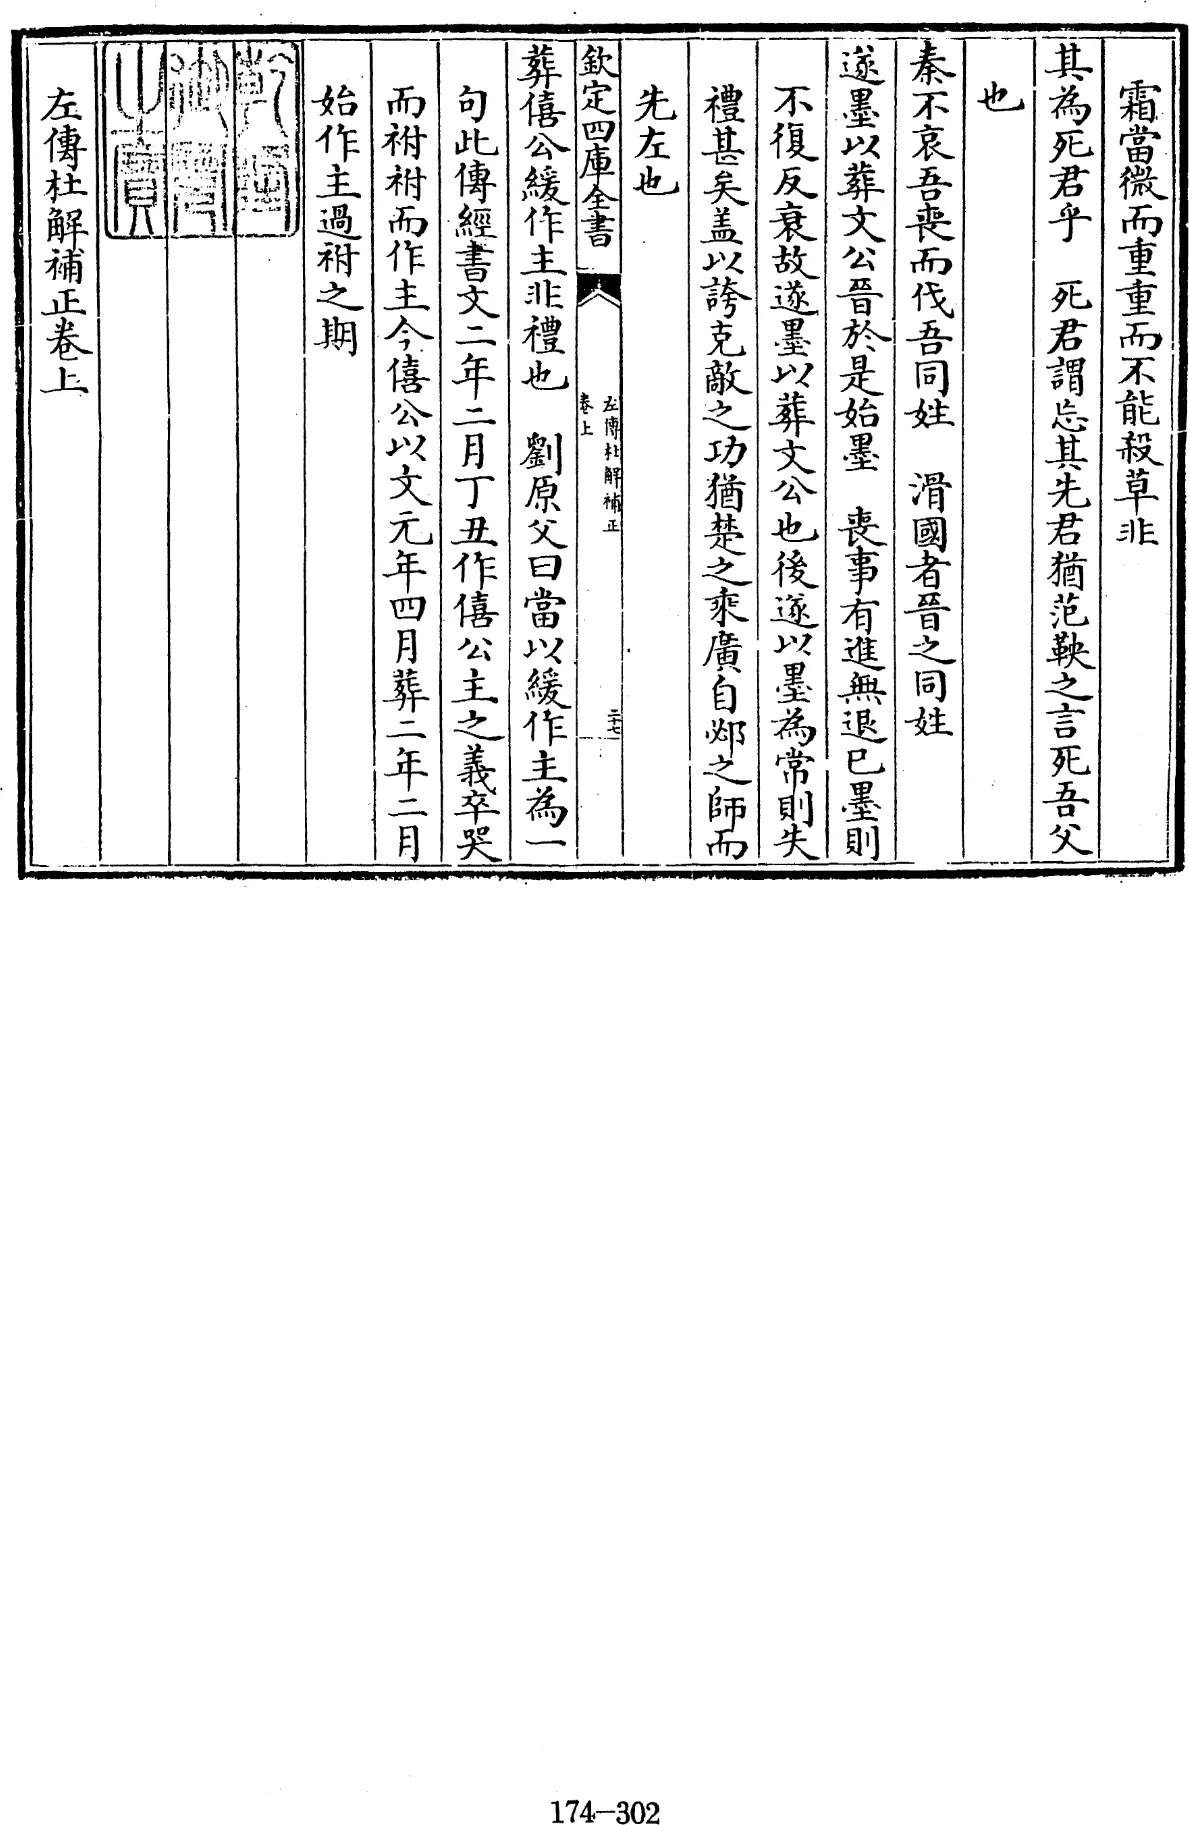 霜當微而重重而不能殺草非
其為死君乎　死君謂忘其先君猶范鞅之言死吾父
也
秦不哀吾喪而伐吾同姓　滑國者晉之同姓
遂墨以葬文公晉於是始墨　喪事有進無退已墨則
不復反衰故遂墨以葬文公也後遂以墨為常則失
禮甚矣盖以誇克敵之功猶楚之乘廣自邲之師而
先左也
欽定四庫全書
左傳杜解補正
卷上
二十七
葬僖公緩作主非禮也　劉原父曰當以緩作主為一
句此傳經書文二年二月丁丑作僖公主之義卒哭
而祔祔而作主今僖公以文元年四月葬二年二月
始作主過祔之期
乾隆
御覽
之寶
左傳杜解補正卷上
174-302